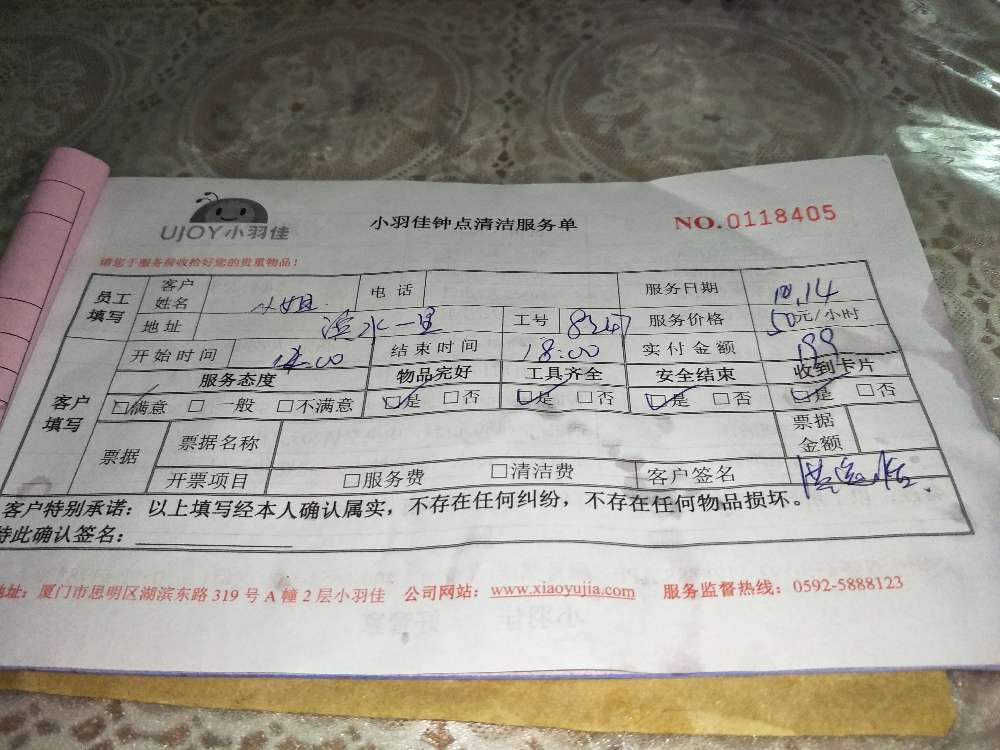 UJOY小羽佳
小羽佳钟点清洁服务单
NO.0118405
请您于服务前收拾好您的贵重物品！
员工填写 客户姓名 小姐 电话 服务日期 10.14
地址 水一里 工号 服务价格 50元/小时
开始时间 14:00 结束时间 18:00 实付金额 199
客户填写 服务态度 物品完好 工具齐全 安全结束 收到卡片
□满意 □一般 □不满意 □是 □否 □是 □否 □是 □否 □是 □否
票据 票据名称 票据金额
开票项目 □服务费 □清洁费 客户签名
客户特别承诺：以上填写经本人确认属实，不存在任何纠纷，不存在任何物品损坏。
特此确认签名：
地址：厦门市思明区湖滨东路 319 号 A 幢 2 层小羽佳 公司网站：www.xiaoyujia.com 服务监督热线：0592-5888123